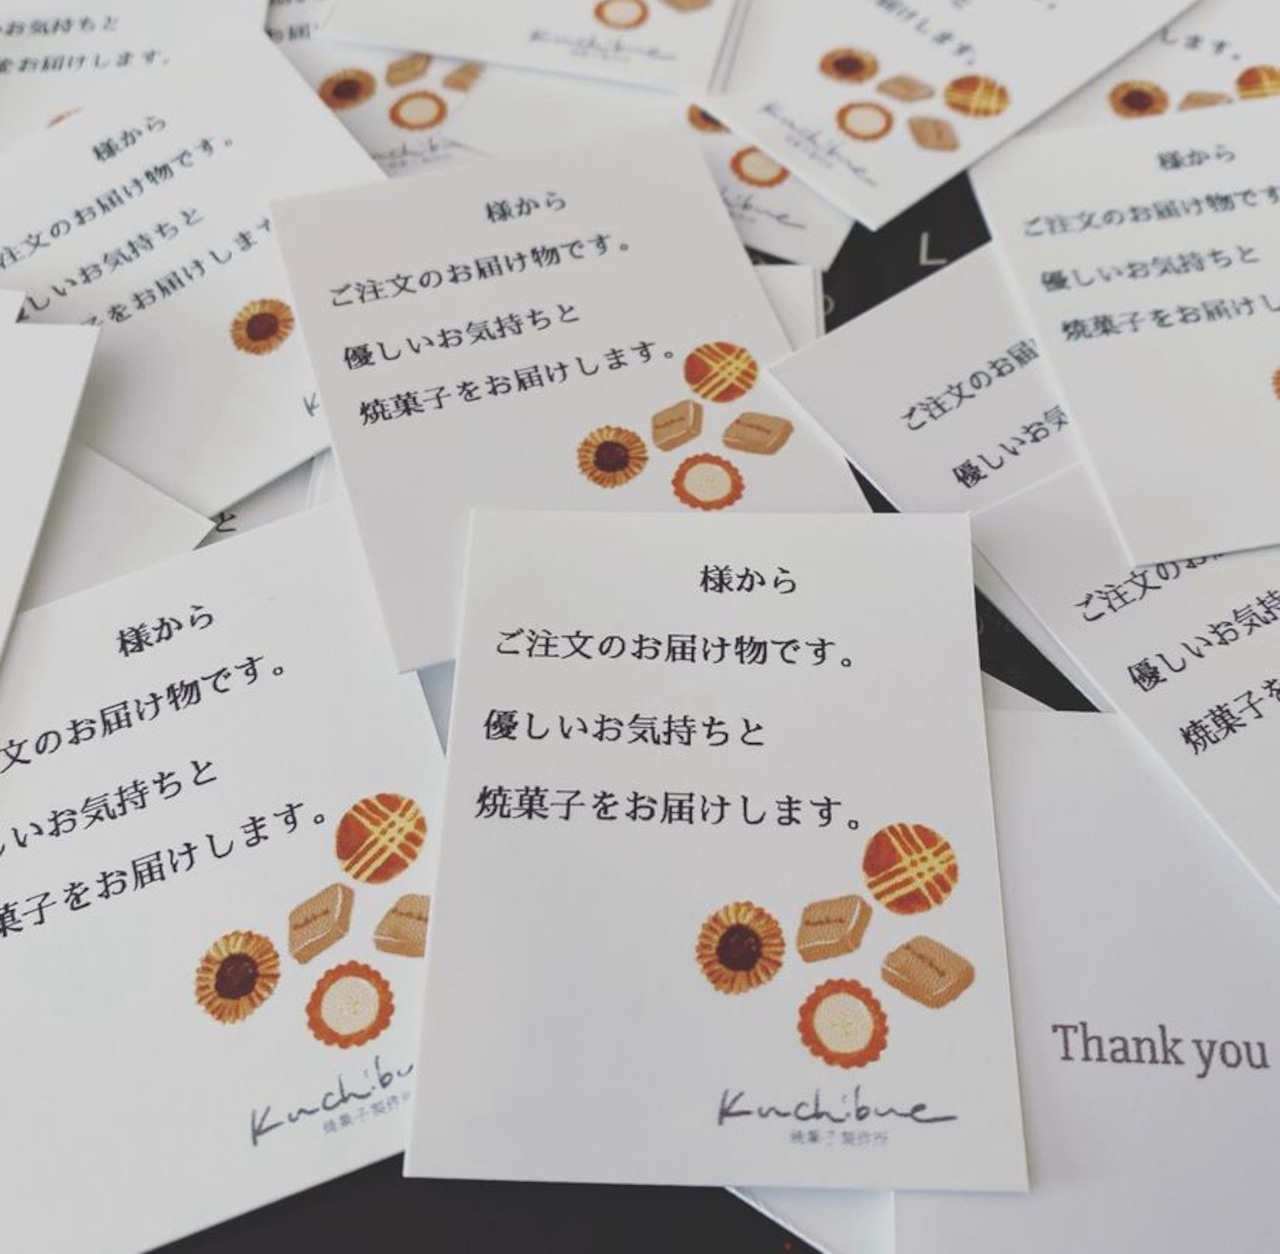 お気持ちと
をお届けします。
様から
注文のお届け物です。
しいお気持ちと
子をお届けします
様から
ご注文のお届け物です。
優しいお気持ちと
焼菓子をお届けします。
Kuchibue
Kuchibue
様から
ご注文のお届け物です
優しいお気持ちと
焼菓子をお届けし
L
ご注文のお届
優しいお気
様から
文のお届け物です。
いお気持ちと
菓子をお届けします。
Kuchibu
焼菓子製作所
様から
ご注文のお届け物です。
優しいお気持ちと
焼菓子をお届けします。
Kuchibue
焼菓子製作所
ご注文の
優しいお気持
焼菓子を
Thank you